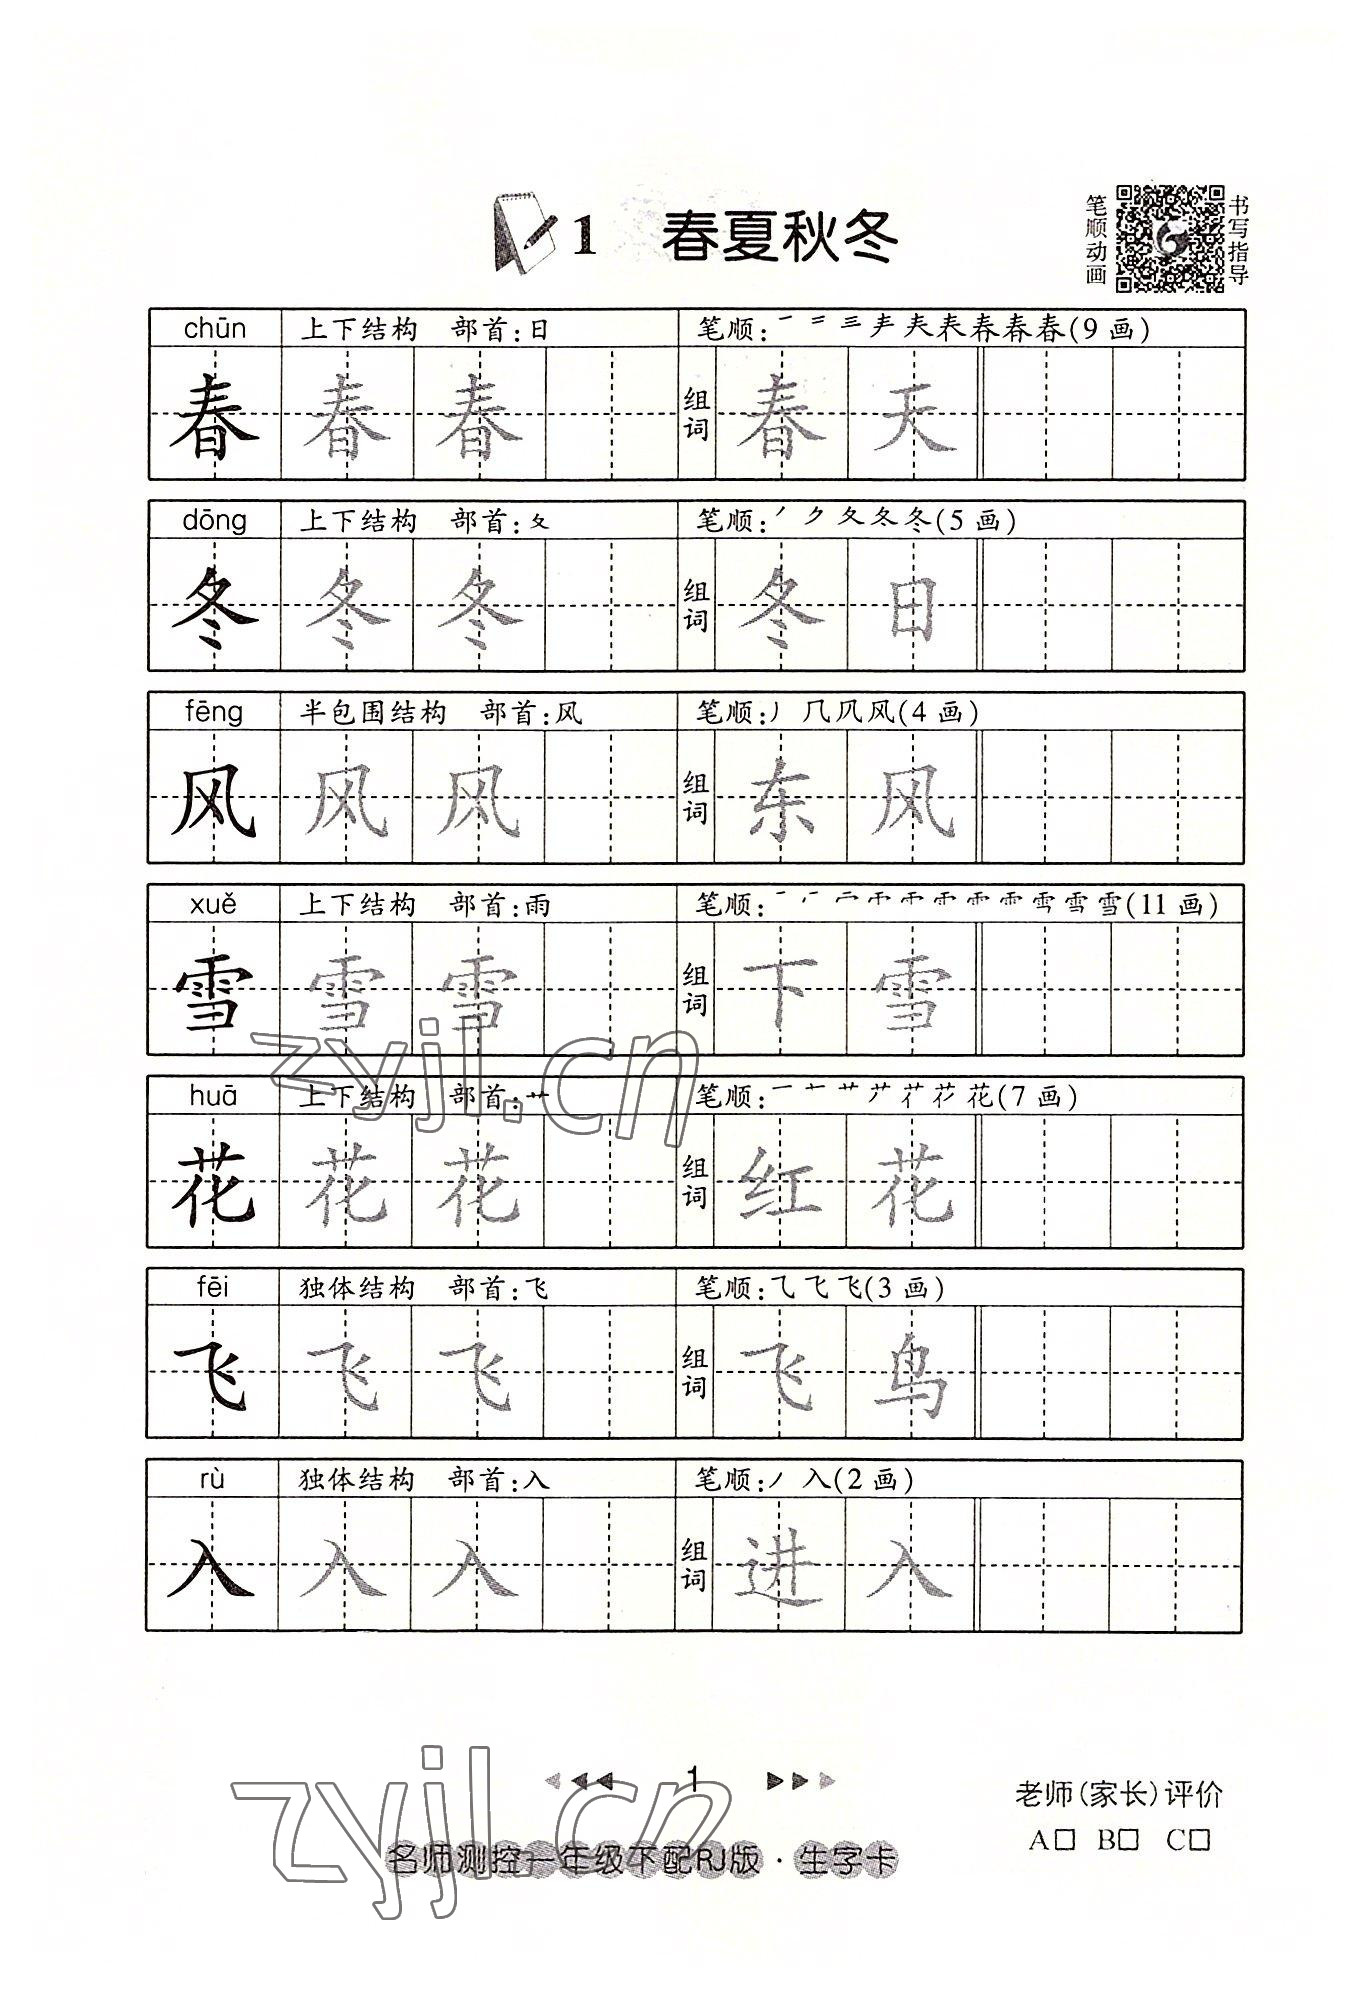 1 春夏秋冬
笔顺动画
书写指导
chūn 上下结构 部首:日 笔顺:
(9画)
春 春 春 组词 春 天
dōng 上下结构 部首:夂 笔顺:丿 ク 夂 冬 冬(5画)
冬 冬 冬 组词 冬 日
fēng 半包围结构 部首:风 笔顺:丿 几 凤 风(4画)
风 风 风 组词 东 风
xuě 上下结构 部首:雨 笔顺:
雪(11画)
雪 雪 雪 组词 下 雪
huā 上下结构 部首:艹 笔顺:
花(7画)
花 花 花 组词 红 花
fēi 独体结构 部首:飞 笔顺:⺄ 飞 飞(3画)
飞 飞 飞 组词 飞 鸟
rù 独体结构 部首:入 笔顺:丿 入(2画)
入 入 入 组词 进 入
zyjl.cn
1
老师(家长)评价
A□ B□ C□
名师测控一年级下配RJ版·生字卡
zyjl.cn